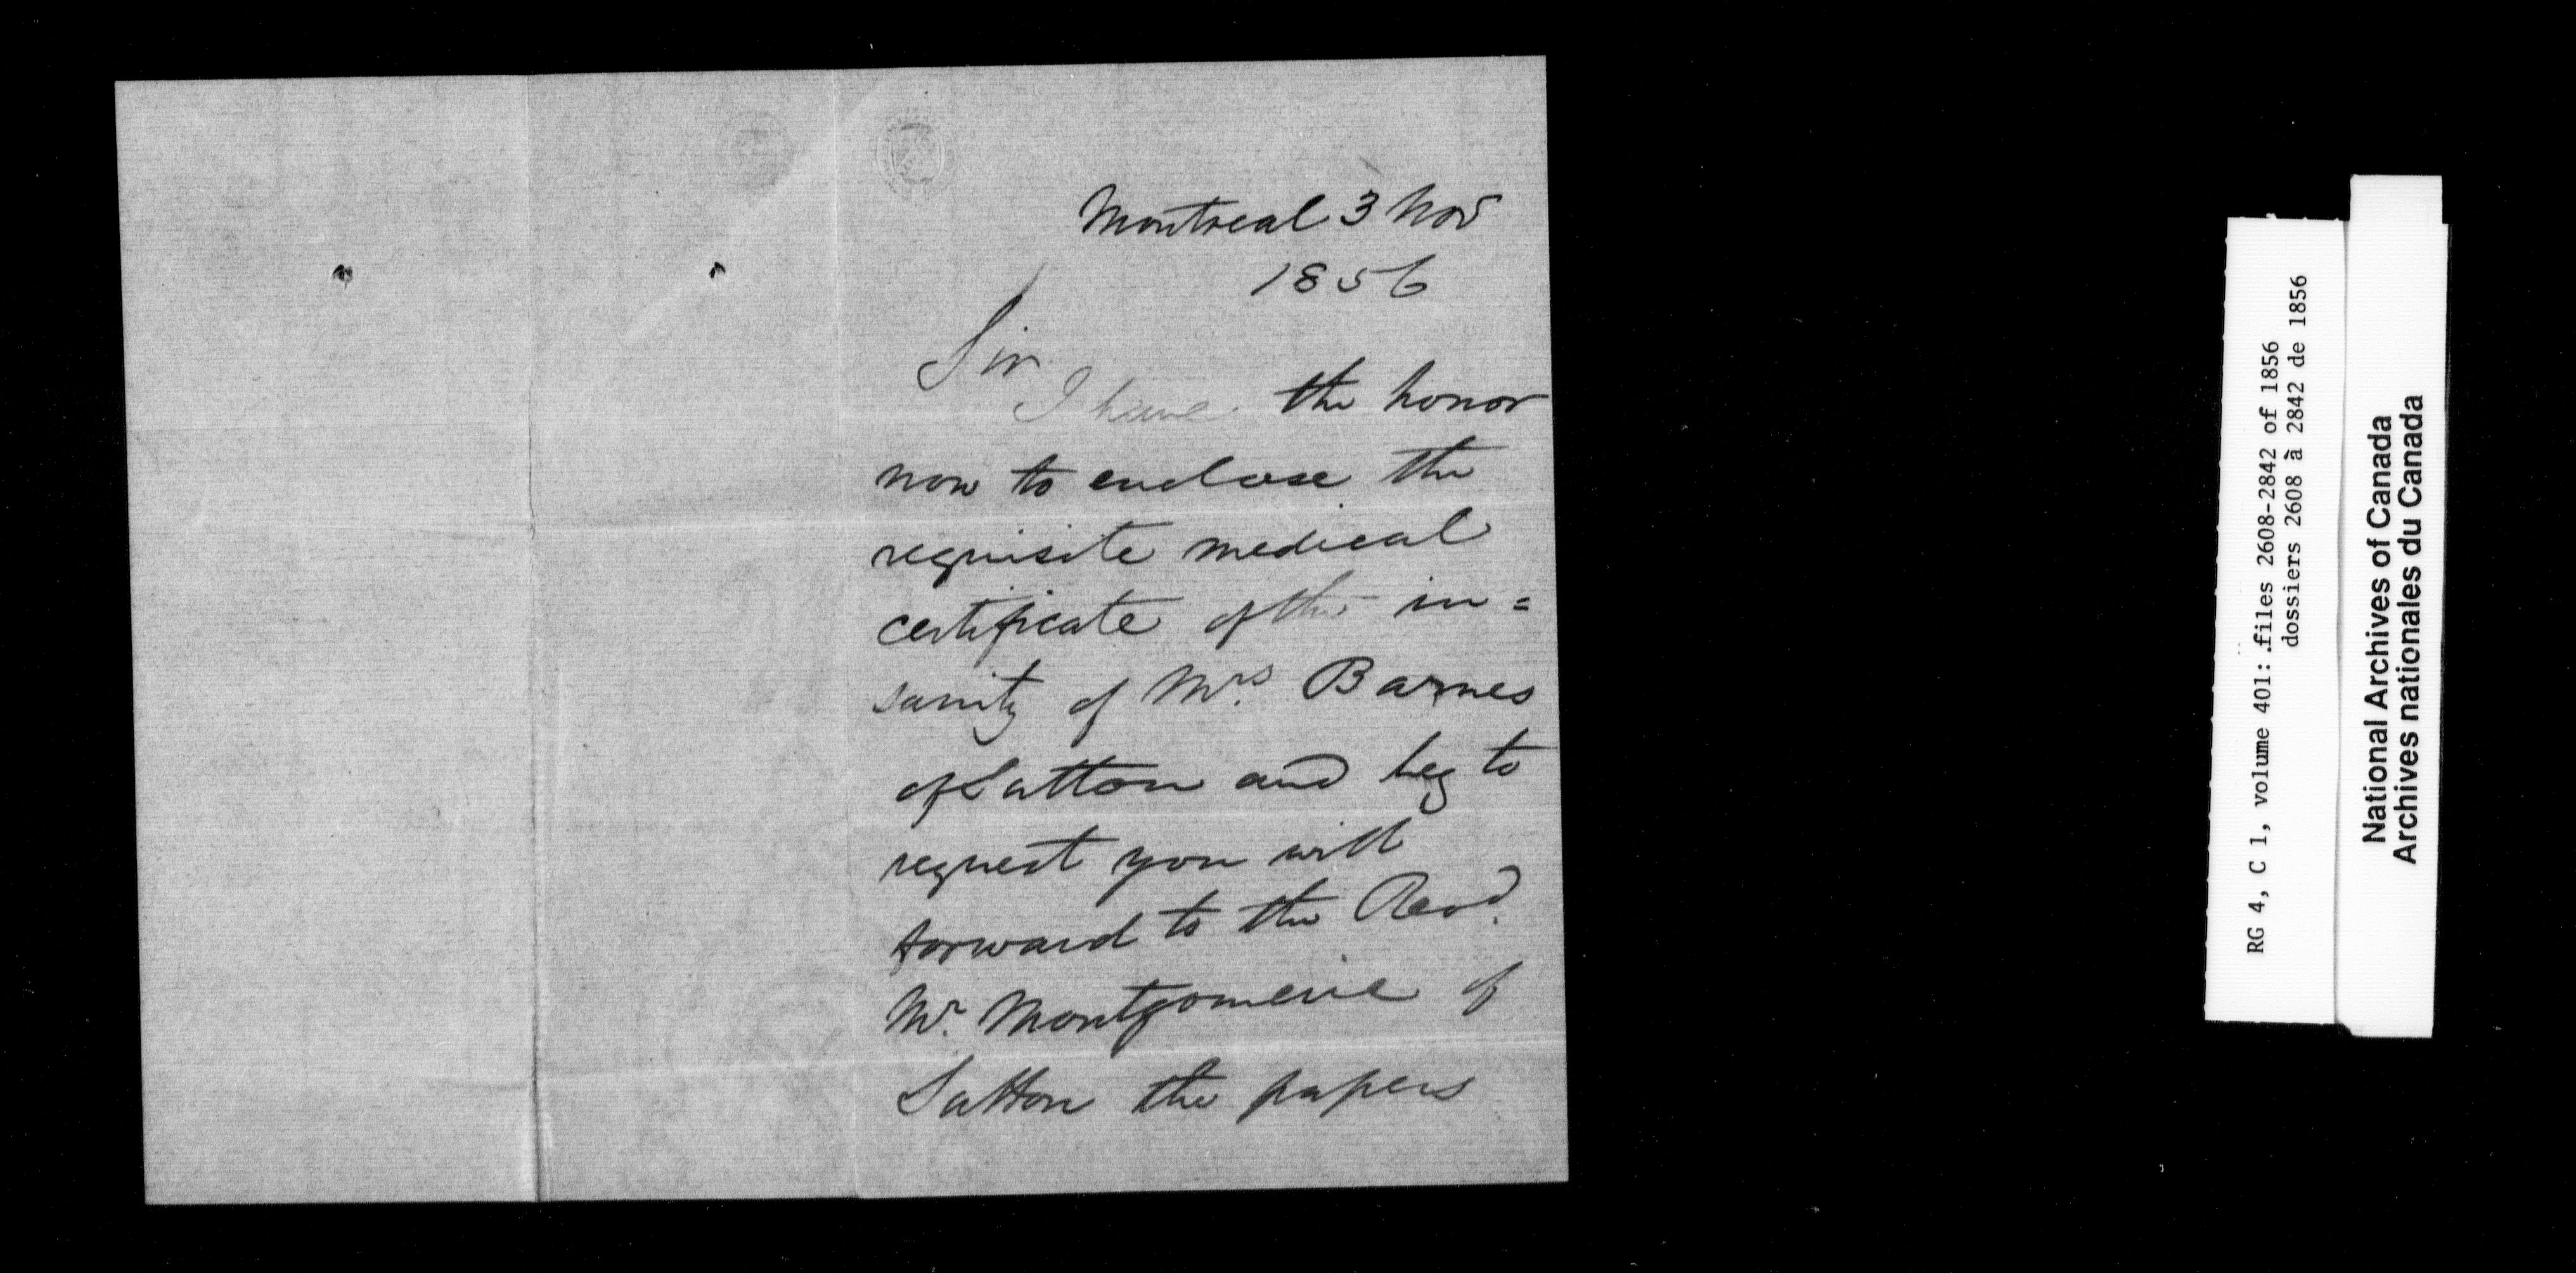 Montreal 3 Nov
1856
Sir
I have the honor
now to enclose the
requisite medical
certificate of the in=
sanity of Mrs. Barnes
of Sutton and beg to
request you will
forward to the Revd.
Mr. Montgomerie of
Sutton the papers
RG 4, C 1, volume 401: files 2608-2842 of 1856
dossiers 2608 à 2842 de 1856
National Archives of Canada
Archives nationales du Canada